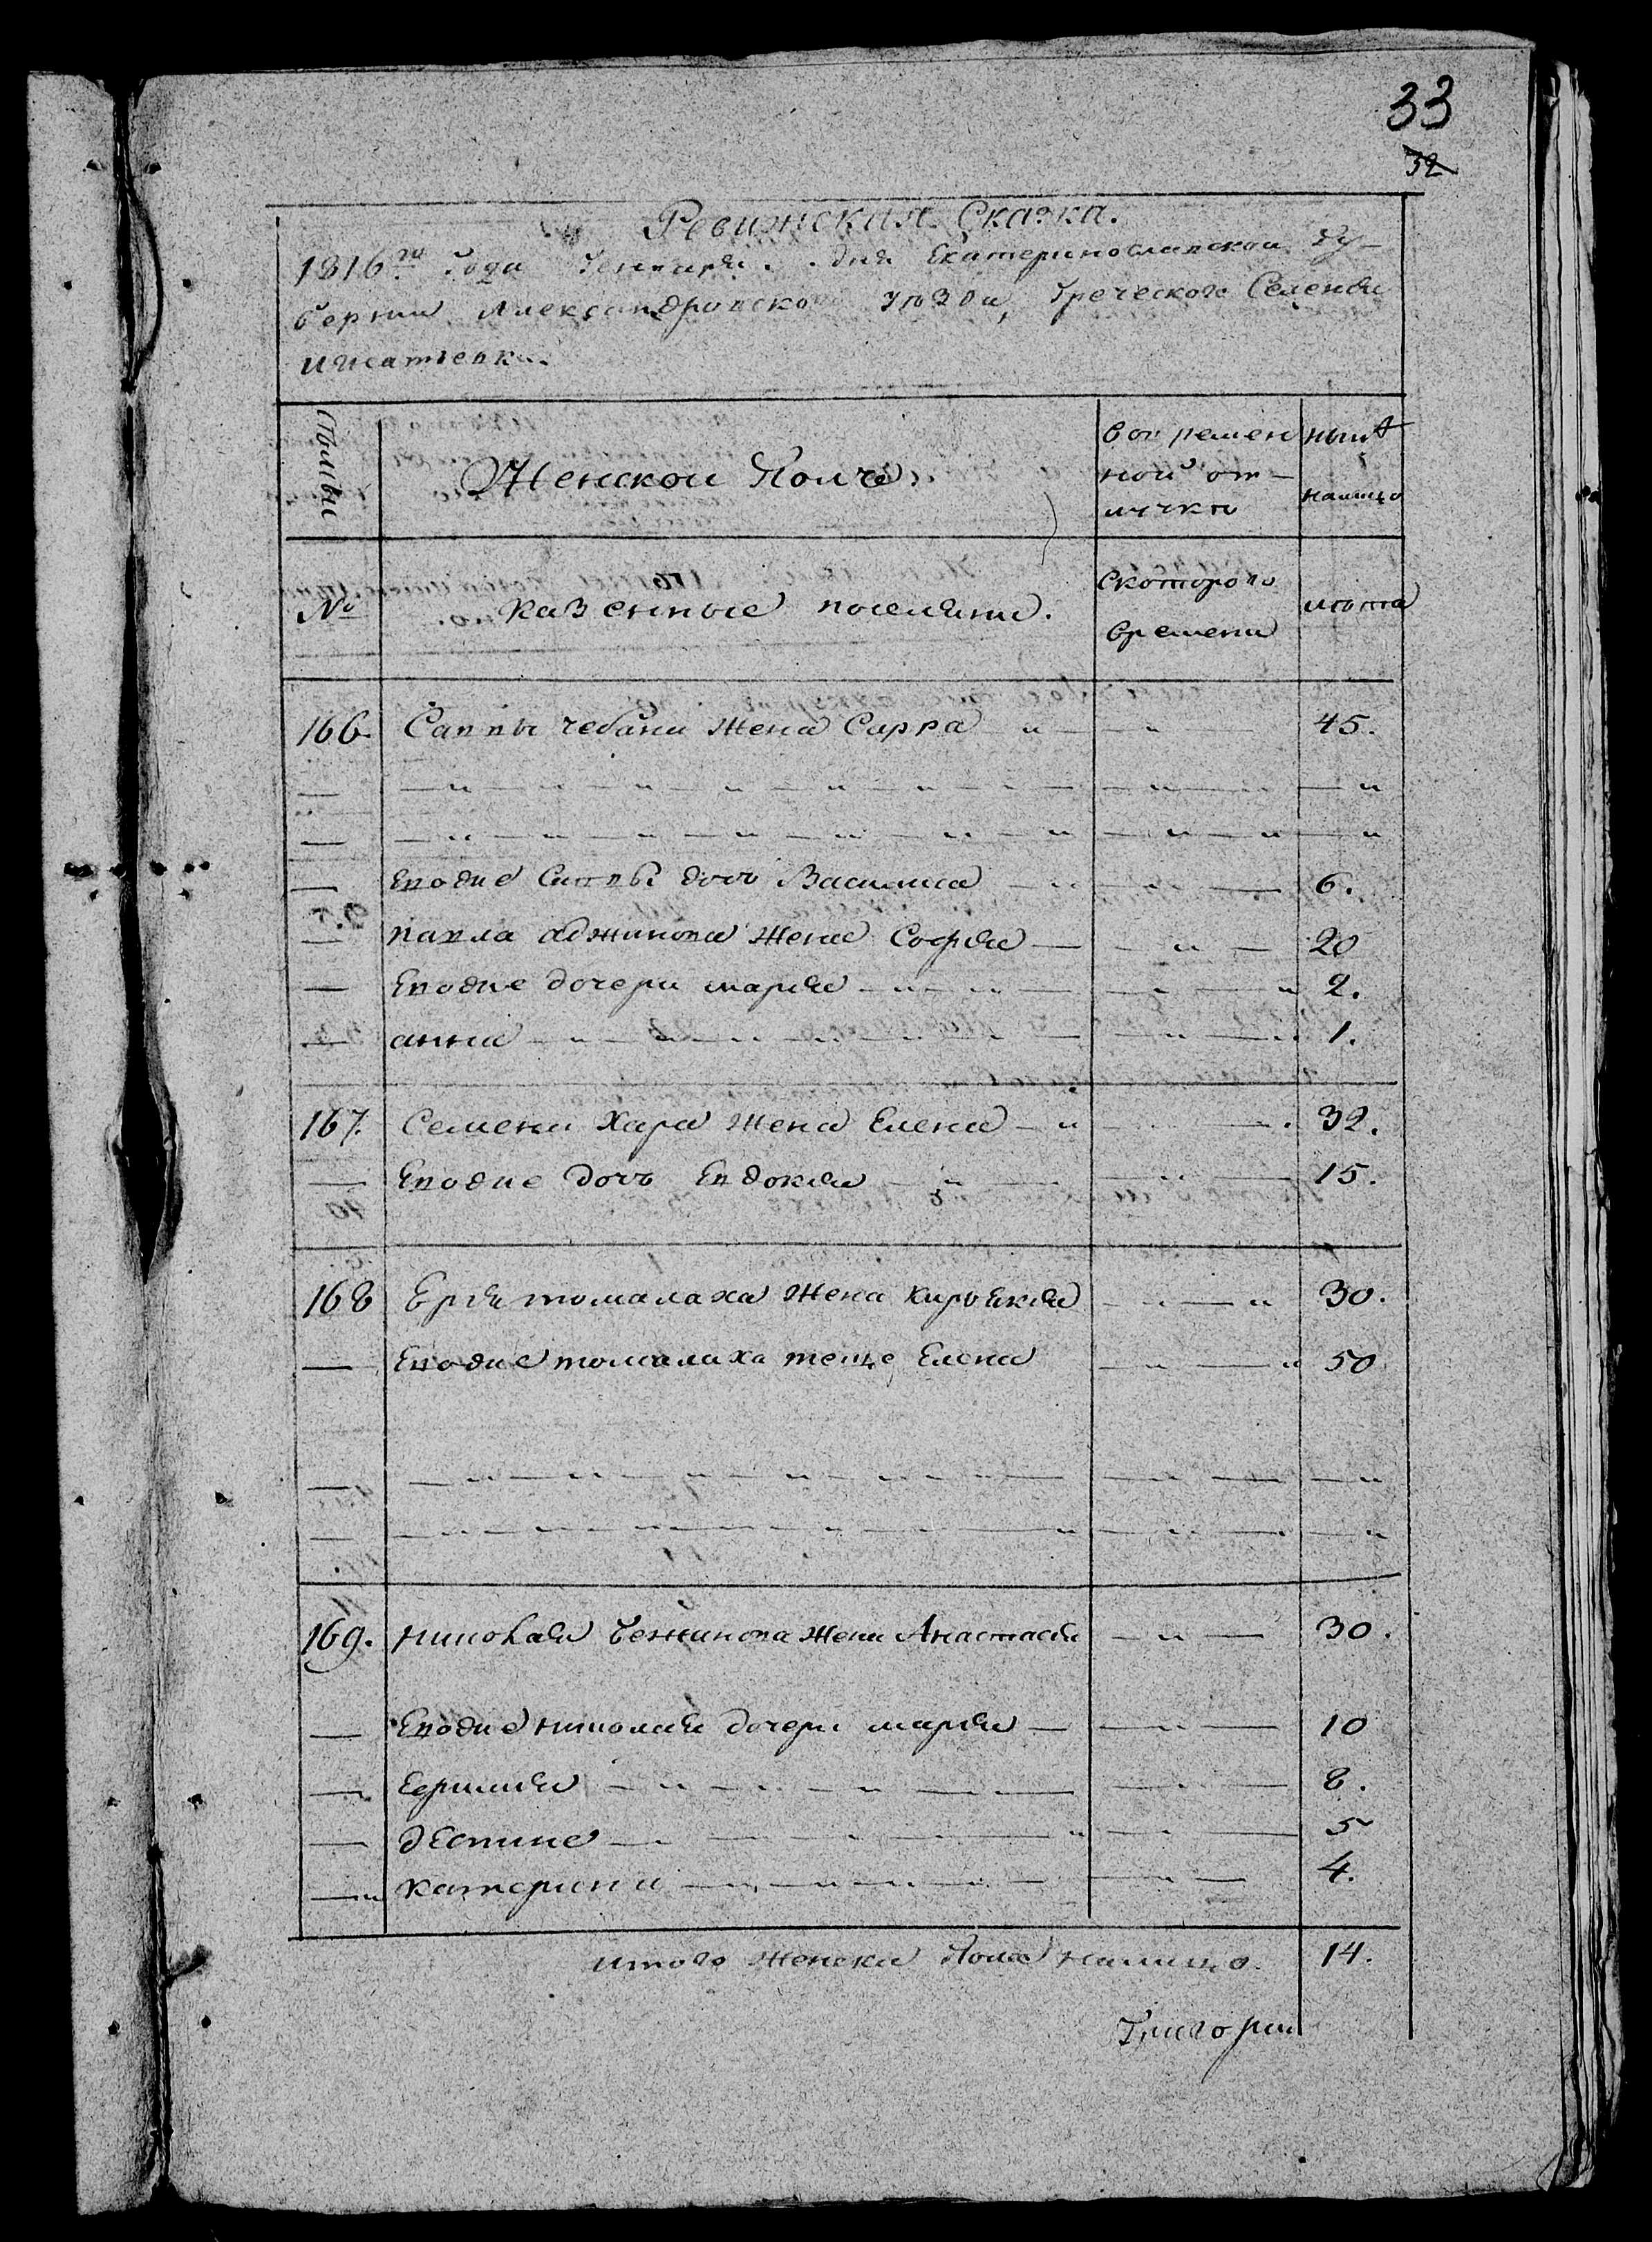 33
32
Ревижская Сказка.
1816го Года Генваря. дня Екатеринославской гу-
бернии Александровско уѣзда, Греческого Селенья
игнатьевки.
семьи
Женскои Полъ.
вовремен
ной от-
лучкѣ
нынѣ
налицо
№
казенные поселяни.
Скоторого
времени
лѣта
166 Саввы чебани жена Сарра 45.
Еводие Саввы дочь Василиса 6.
павла аджинова жена Софыя 20
Еводие дочери марыя 2.
анна 1.
167. Семена Хара жена Елена 32.
Еводие дочь Евдокыя 15.
168 томалаха жена кирыякыя 30.
Еводие томалаха теще Елена 50
169. николая жена Анастасыя 30.
Еводие николая дочери марыя 10
Ефимыя 8.
деспине 5
катерина 4.
итого женска Пола налицо. 14.
Григории